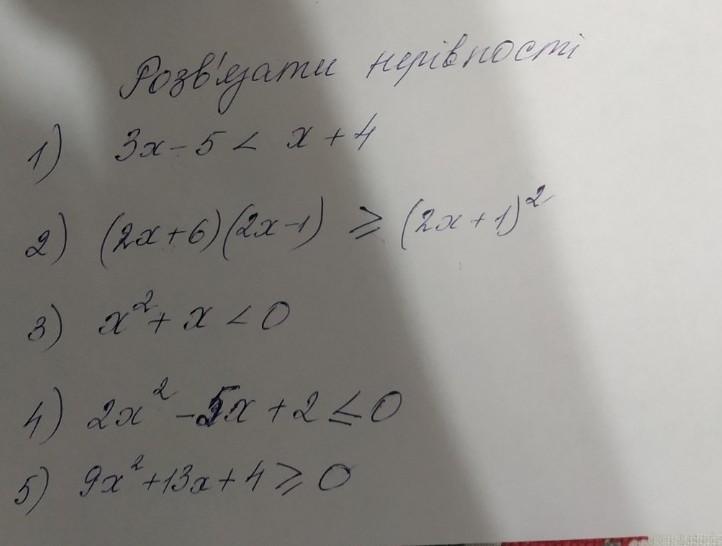 Розв'язати нерівності
1) 3x - 5 < x + 4
2) (2x + 6)(2x - 1) ≥ (2x + 1)²
3) x² + x < 0
4) 2x² - 5x + 2 ≤ 0
5) 9x² + 13x + 4 ≥ 0